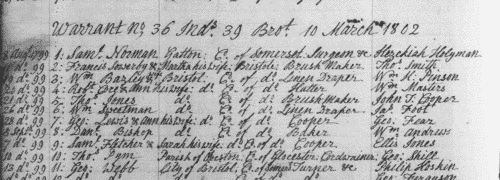 Warrant No. 36 Ind. 39 Brot. 10 March 1802
1: Saml. Norman Yatton: Co. of Somerset Surgeon & Hezekiah Holyman
2: Francis & Martha his wife: Bristol: Brush Maker Thos. Smith
3: Wm. Bazley & Bristol: Co. of do. Linen Draper Wm. K. Pinson
4: Robt. & Ann his wife: do. Co. of do. Hatter Wm. Masters
5: Thos. Jones do. Co. of do. Brush Maker John T. Cooper
6: Wm. Sweetman do. Co. of do. Linen Draper Jas. Foot
99 7: Geo: Lewis & Ann his wife: do. Co. of do. Cooper Geo: Fear
99 8: Danl. Bishop do. Co. of do. Baker Wm. Andrews
7 do. 99 9: Saml. Fletcher & Sarah his wife: do. Co. of do. Cooper Ellis Jones
10 do. 99 10: Thos. Pym Parish of Co. of Glocester: Cordwainer Geo: Shill
13 do. 99 11: Geo: Webb City of Bristol, Co. of Turner &c. Philip Hoskin
Geo: Ferguson